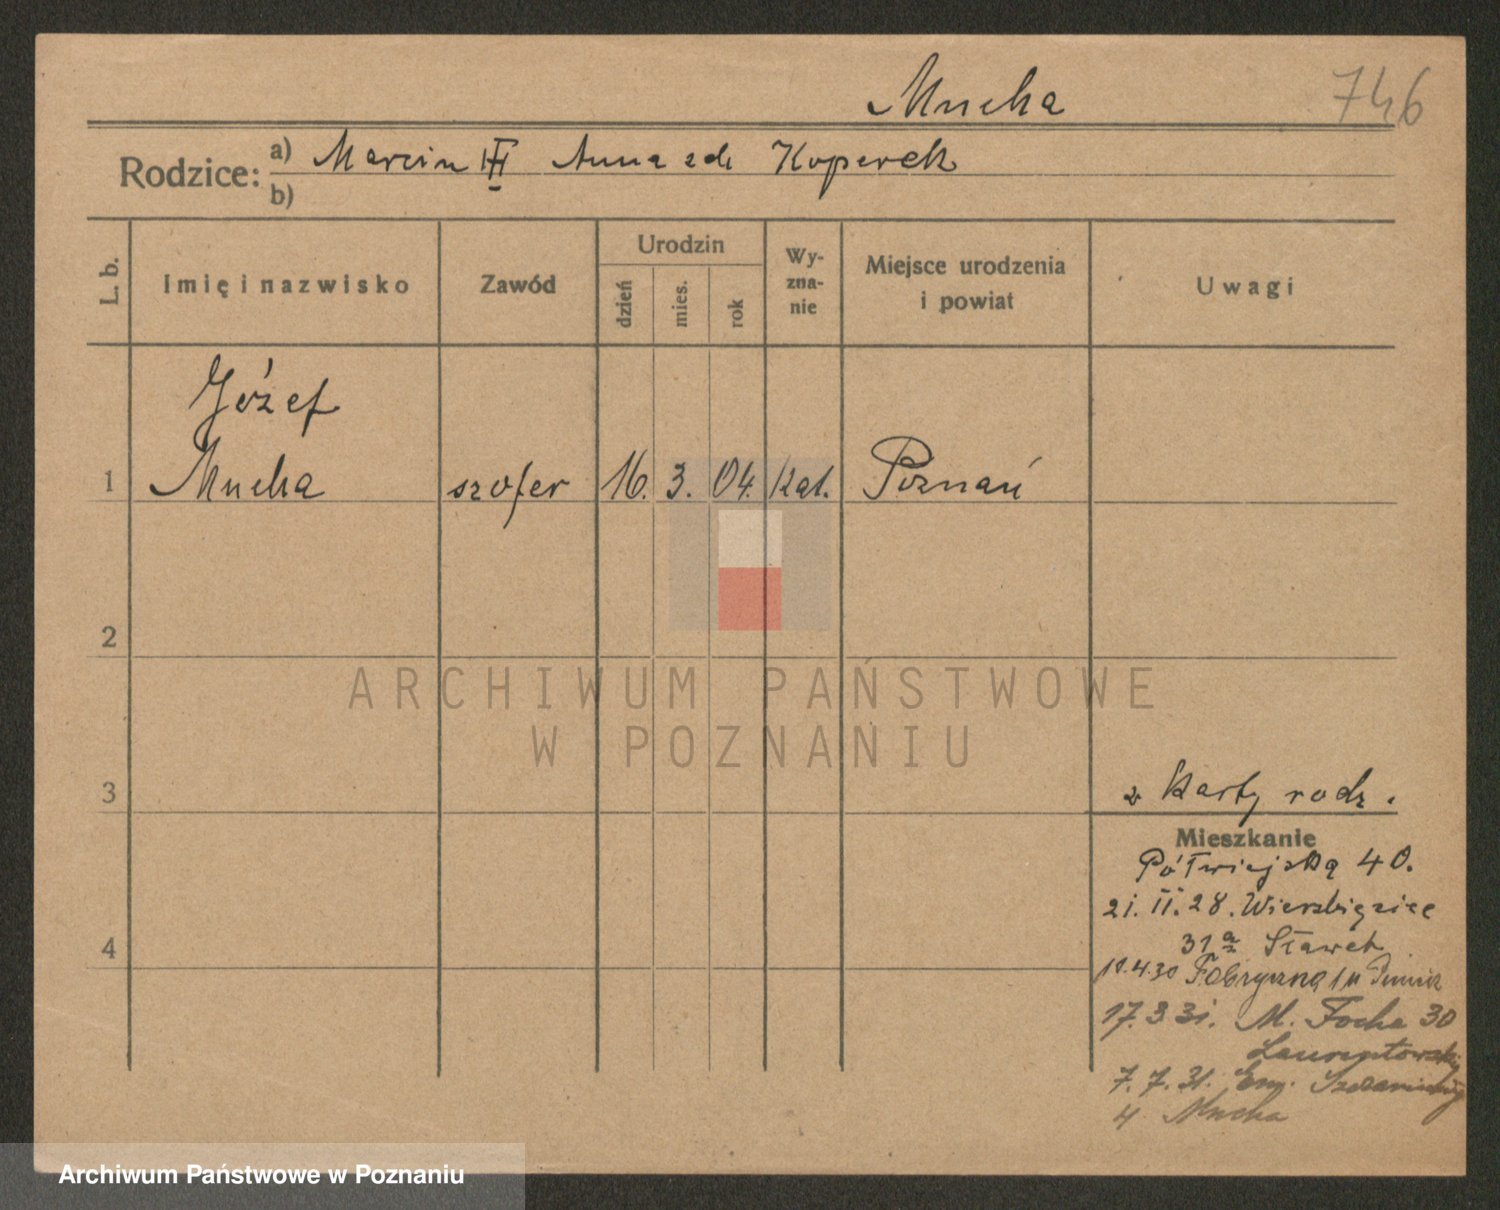 Mucha 746
Rodzice: a) Marcin III Anna zd. Koperek
b)
L. b.
Imię i nazwisko
Zawód
Urodzin
dzień
mies.
rok
Wy-
zna-
nie
Miejsce urodzenia
i powiat
Uwagi
Józef
1 Mucha szofer 16. 3. 04. kat. Poznań
2
ARCHIWUM PAŃSTWOWE
W POZNANIU
3
z karty rodz.
Mieszkanie
Półwiejska 40.
21. II. 28. Wierzbięcice
4
31a Sławek
10.4.30 Fabryczna
17. 3. 31. M. Focha 30
7. 7. 31. Em. Sczanieckiej
4 Mucha
Archiwum Państwowe w Poznaniu